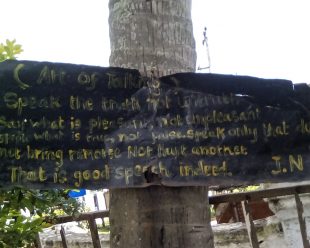 ( Art of Talking )
Speak the truth not
Say what is pleasant, not unpleasant
what is true, not false. Speak only that do
not bring remorse Not hurt another
That is good speech indeed. J.N